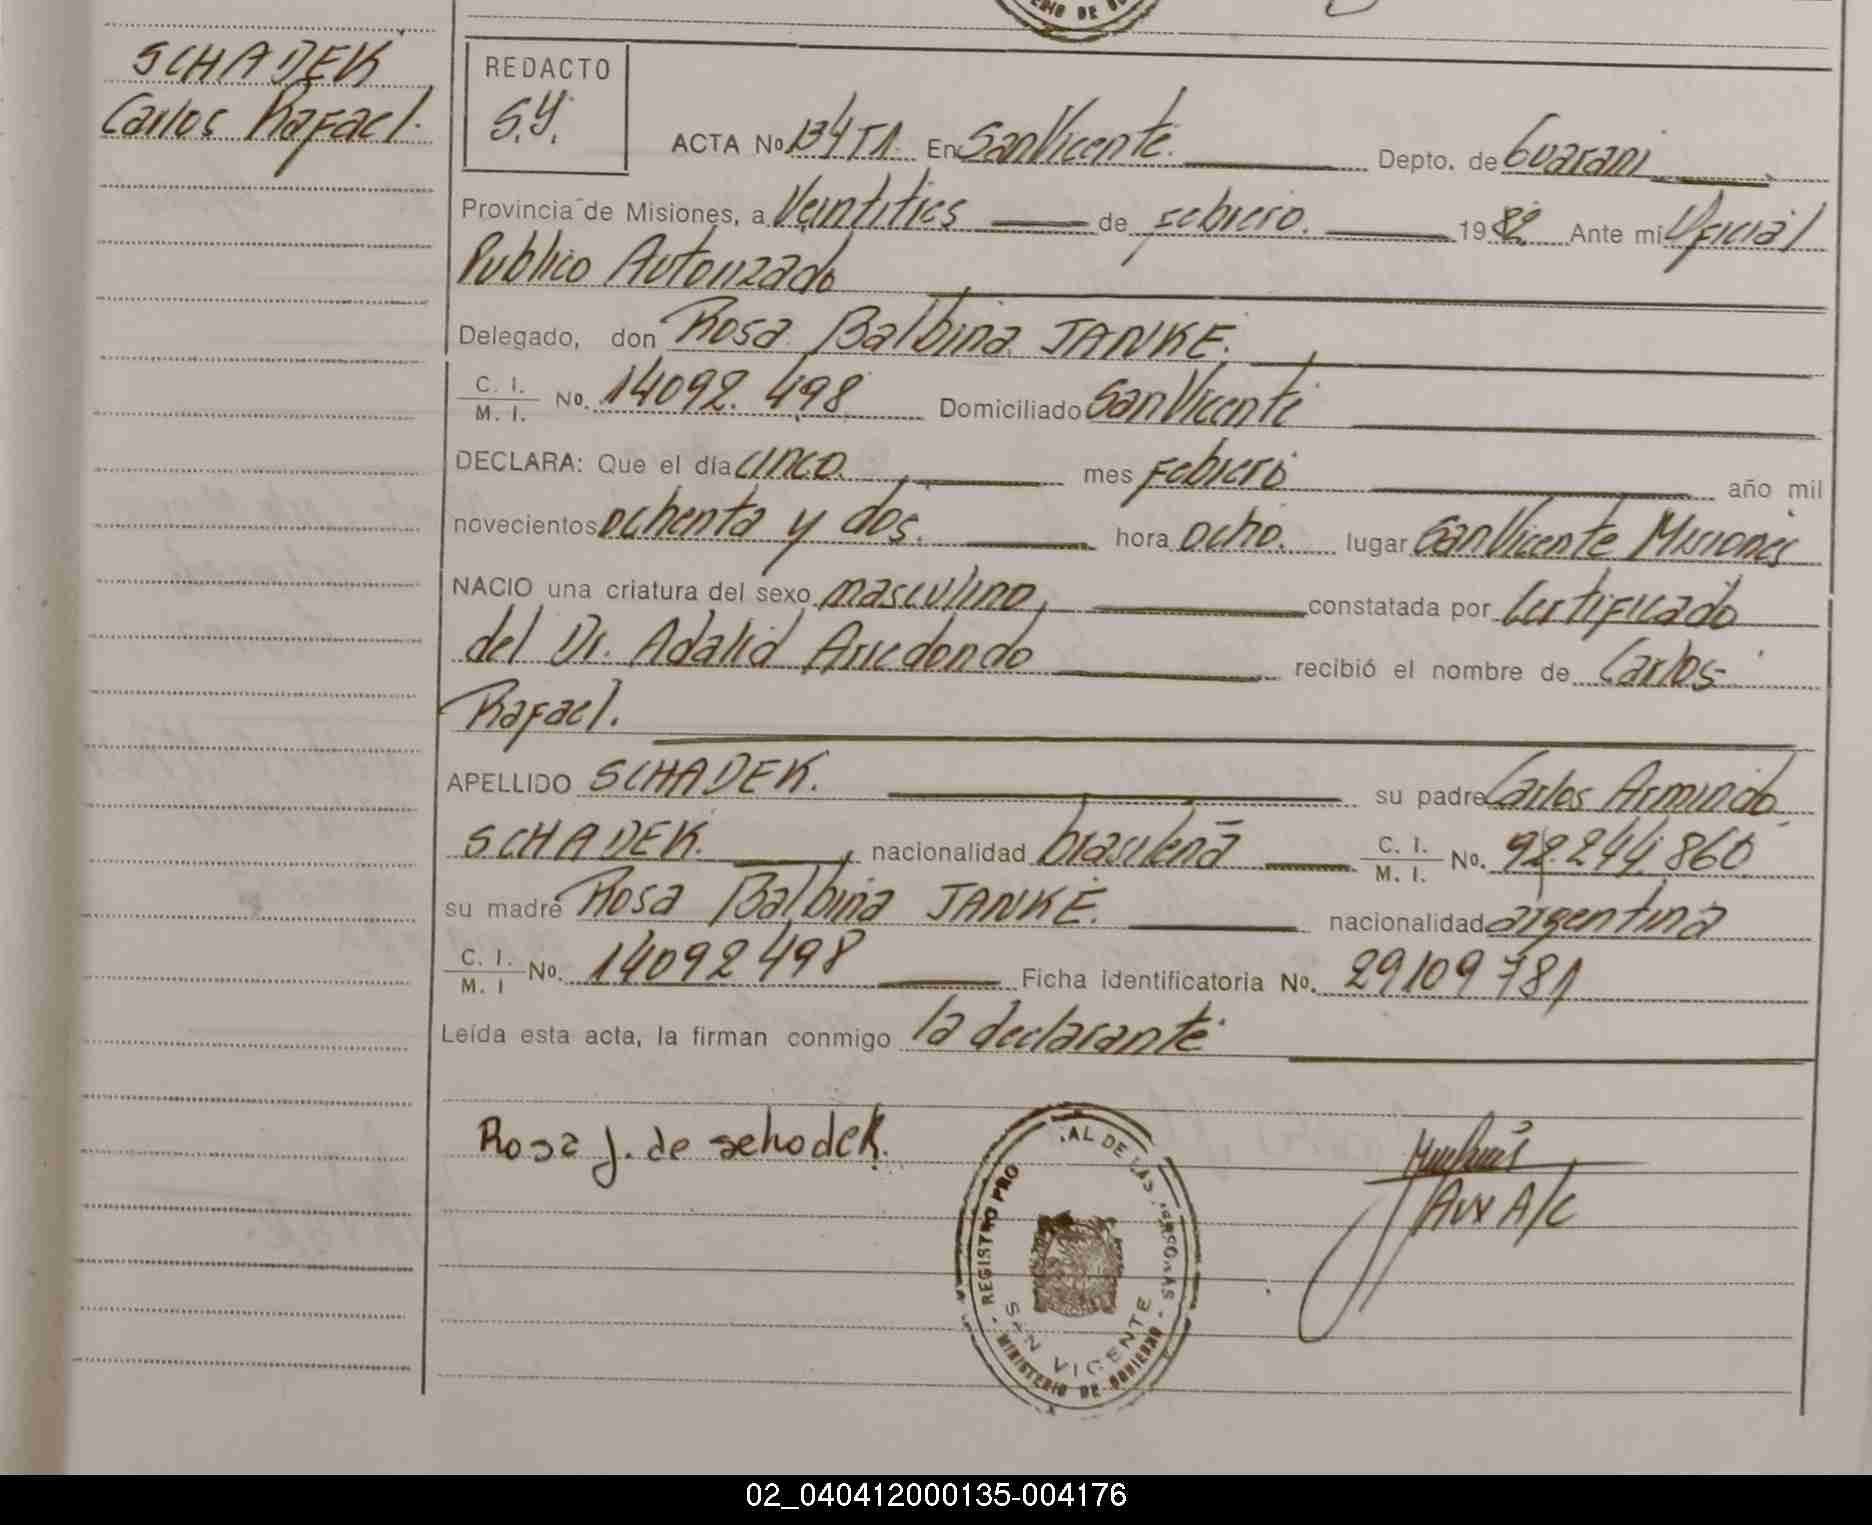 SCHADEK
Carlos Rafael.
REDACTO
S.Y.
ACTA No 134 T1. En San Vicente. Depto. de Guarani
Provincia de Misiones, a Veintitres de Febrero. 1982 Ante mi Oficial
Publico Autorizado
Delegado, don Rosa Balbina JANKE.
C. I. / M. I. No. 14092.498 Domiciliado San Vicente
DECLARA: Que el día cinco. mes Febrero año mil
novecientos ochenta y dos. hora ocho. lugar San Vicente Misiones
NACIO una criatura del sexo masculino, constatada por Certificado
del Dr. Adalid Arredondo recibió el nombre de Carlos
Rafael.
APELLIDO SCHADEK. su padre Carlos Armindo
SCHADEK. nacionalidad brasileña C. I. / M. I. No. 92.244.860
su madre Rosa Balbina JANKE. nacionalidad argentina
C. I. / M. I No. 14092498 Ficha identificatoria No. 29109781
Leída esta acta, la firman conmigo la declarante
Rosa J. de schodek.
AUX A/C
REGISTRO PRO AL DE LAS PERSONAS
SAN VICENTE
MINISTERIO DE GOBIERNO
02_040412000135-004176